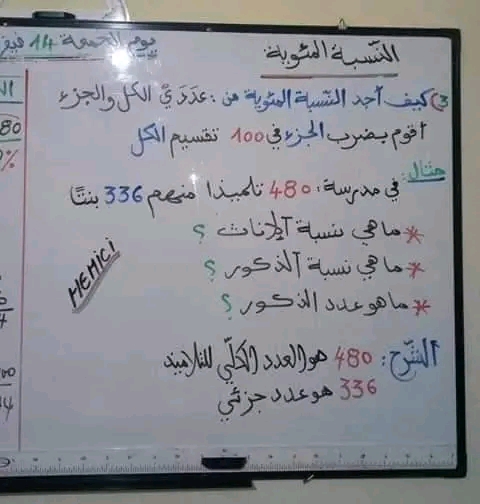 يوم الجمعة 14 فيفر
النّسبة المئوية
3) كيف أجد النّسبة المئوية من : عَدَدَيْ الكل والجزء
أقوم بضرب الجزء في 100 تقسيم الكل
مثال:
في مدرسة: 480 تلميذا منهم 336 بنتًا
* ماهي نسبة الإناث ؟
* ماهي نسبة الذكور ؟
* ماهو عدد الذكور ؟
HEMICI
الشّرح: 480 هو العدد الكلّي للتلاميذ
336 هو عدد جزئي
80
%
4
00
4